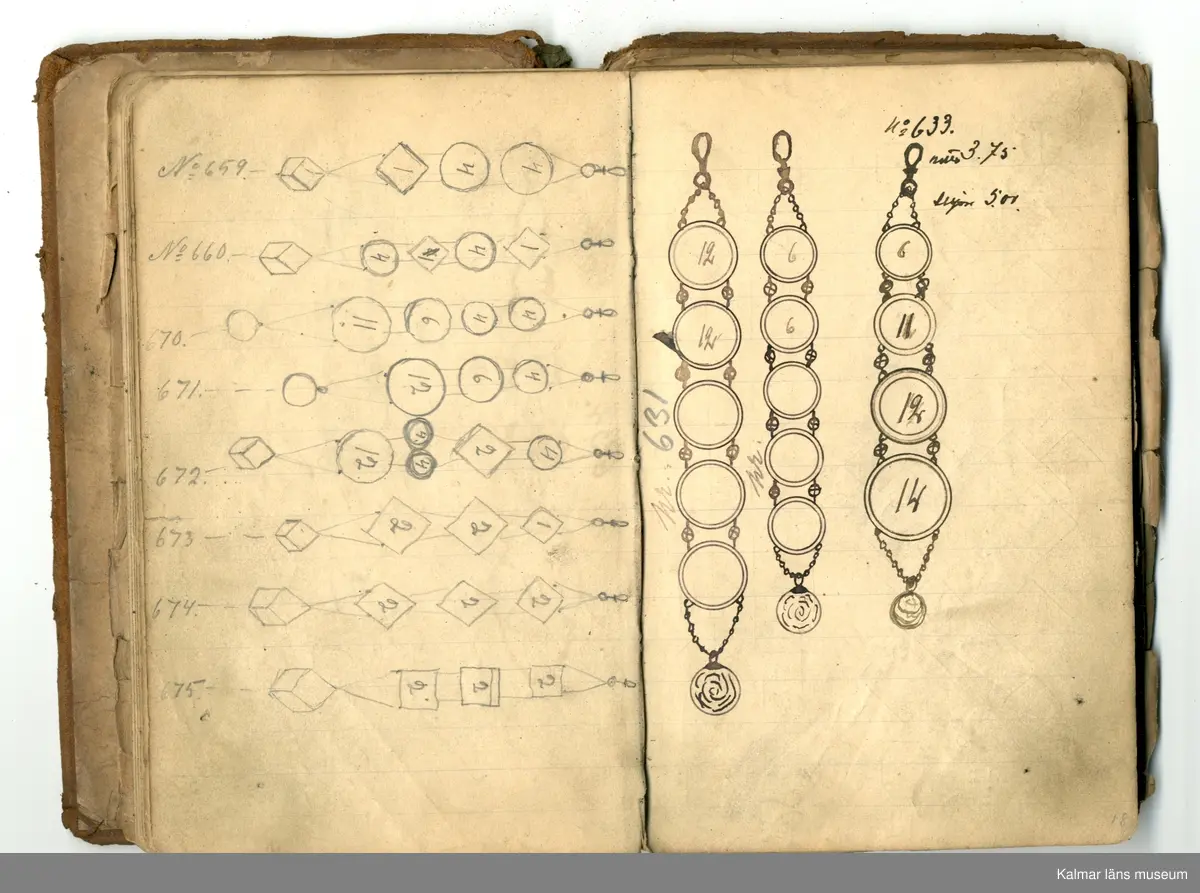 No 659. 1 4 4
No 660. 4 12 4 1
670. 11 6 4 4
671. 12 6 4
672. 12 4 4 2 4
673 2 2 1
674 2 2 2
675. 2 2 2
No 633.
3.75
5.00.
12
12
Nr. 631
6
6
Nr.
6
11
12
14
18
Kalmar läns museum